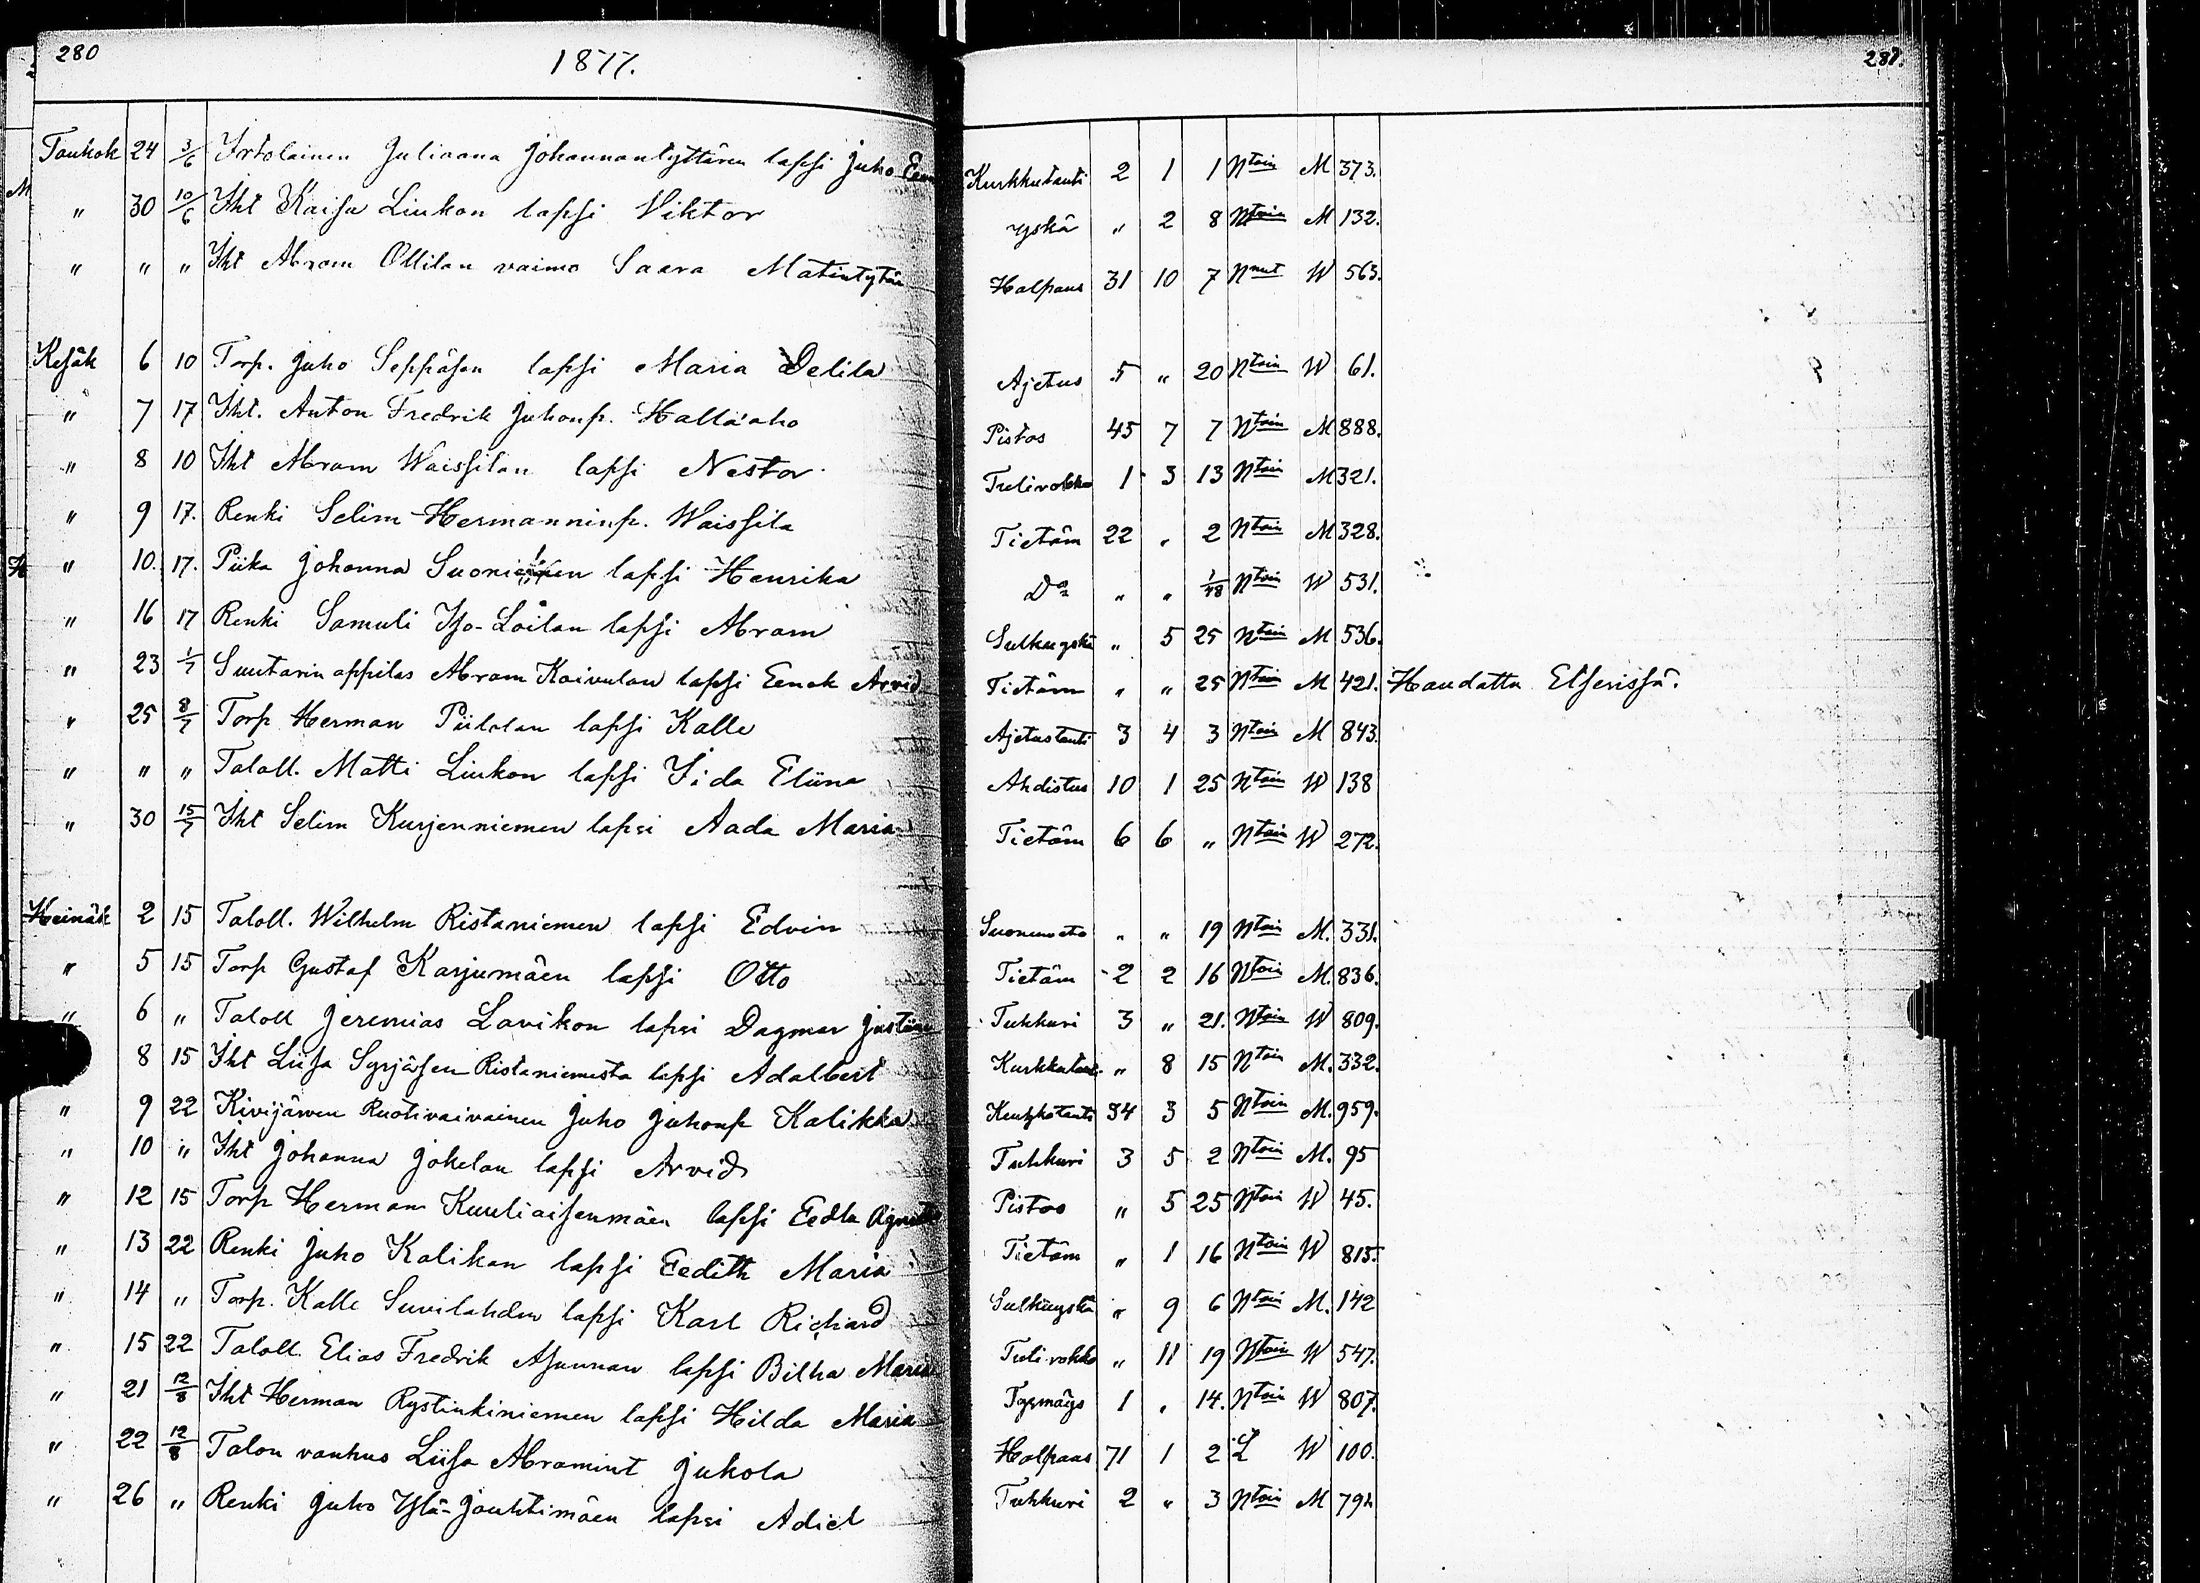 280 1877. 281.
Toukok 24 3/6 Irtolainen Juliaana Johannantyttären lapsi Juho Kurkkutauti 2 1 1 Ntoin M 373.
" 30 10/6 Iht Kaisa Liukon lapsi Viktor yskä " 2 8 Ntoin M 132.
" " " Iht Abram Ollilan vaimo Saara Matintytär Halpaus 31 10 7 Nnut W 563.
Kesäk 6 10 Torp. Juho Seppäsen lapsi Maria Delila Ajetus 5 " 20 Ntoin W 61.
" 7 17 Iht. Anton Fredrik Juhonp. Hallaaho Pistos 45 7 7 Ntoin M 888.
" 8 10 Iht Abram Waissilan lapsi Nestor Tulirokko 1 3 13 Ntoin M 321.
" 9 17. Renki Selim Hermanninp. Waissila Tietäm 22 " 2 Ntoin M 328.
" 10. 17. Piika Johanna lapsi Henrika Do " " Ntoin W 531.
" 16 17 Renki Samuli Iso-Loilan lapsi Abram Sulkuyskä " 5 25 Ntoin M 536.
" 23 1/7 Suutarin oppilas Abram Koivulan lapsi Eenok Arvid Tietäm " " 25 Ntoin M 421. Haudattu Etserissä.
" 25 8/7 Torp Herman Piilolan lapsi Kalle Ajetustauti 3 4 3 Ntoin M 843.
" " " Taloll. Matti Liukon lapsi Iida Eliina Ahdistus 10 1 25 Ntoin W 138
" 30 15/7 Iht Selim Kurjenniemen lapsi Aada Maria Tietäm 6 6 " Ntoin W 272.
Heinäk 2 15 Taloll. Wilhelm Ristaniemen lapsi Edvin Suonenveto " " 19 Ntoin M. 331.
" 5 15 Torp Gustaf Karjumäen lapsi Otto Tietäm 2 2 16 Ntoin M. 836.
" 6 " Taloll Jeremias Lavikon lapsi Dagmar Justiina Tuhkuri 3 " 21. Ntoin W 809.
8 15 Iht Liisa Syrjäsen Ristaniemestä lapsi Adalbert Kurkkutaut. " 8 15 Ntoin M. 332.
" 9 22 Kivijärven Ruotivaivainen Juho Juhonp Kalikka Keuhkotauti 34 3 5 Ntoin M. 959.
" 10 " Iht Johanna Jokelan lapsi Arvid Tuhkuri 3 5 2 Ntoin M. 95
" 12 15 Torp Herman Kuuliaisenmäen lapsi Eedla Pistos " 5 25 Ntoin W 45.
" 13 22 Renki Juho Kalikan lapsi Eedith Maria Tietäm " 1 16 Ntoin W 815.
" 14 " Torp. Kalle Suvilahden lapsi Karl Richard Sulkuyskä " 9 6 Ntoin M. 142
" 15 22 Taloll. Elias Fredrik Asunnan lapsi Bilha Maria Tulirokko " 11 19 Ntoin W 547.
" 21 12/8 Iht Herman Rystinkiniemen lapsi Hilda Maria 1 " 14. Ntoin W 807.
" 22 12/8 Talon vanhus Liisa Abramint Jukola Halpaus 71 1 2 L W 100.
" 26 " Renki Juho Ylä-Jouhtimäen lapsi Adiel Tuhkuri 2 " 3 Ntoin M